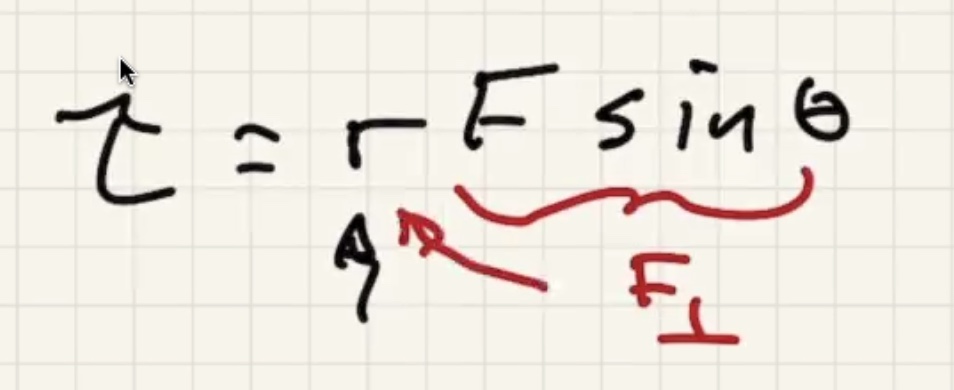 τ = r F sin θ
F⊥